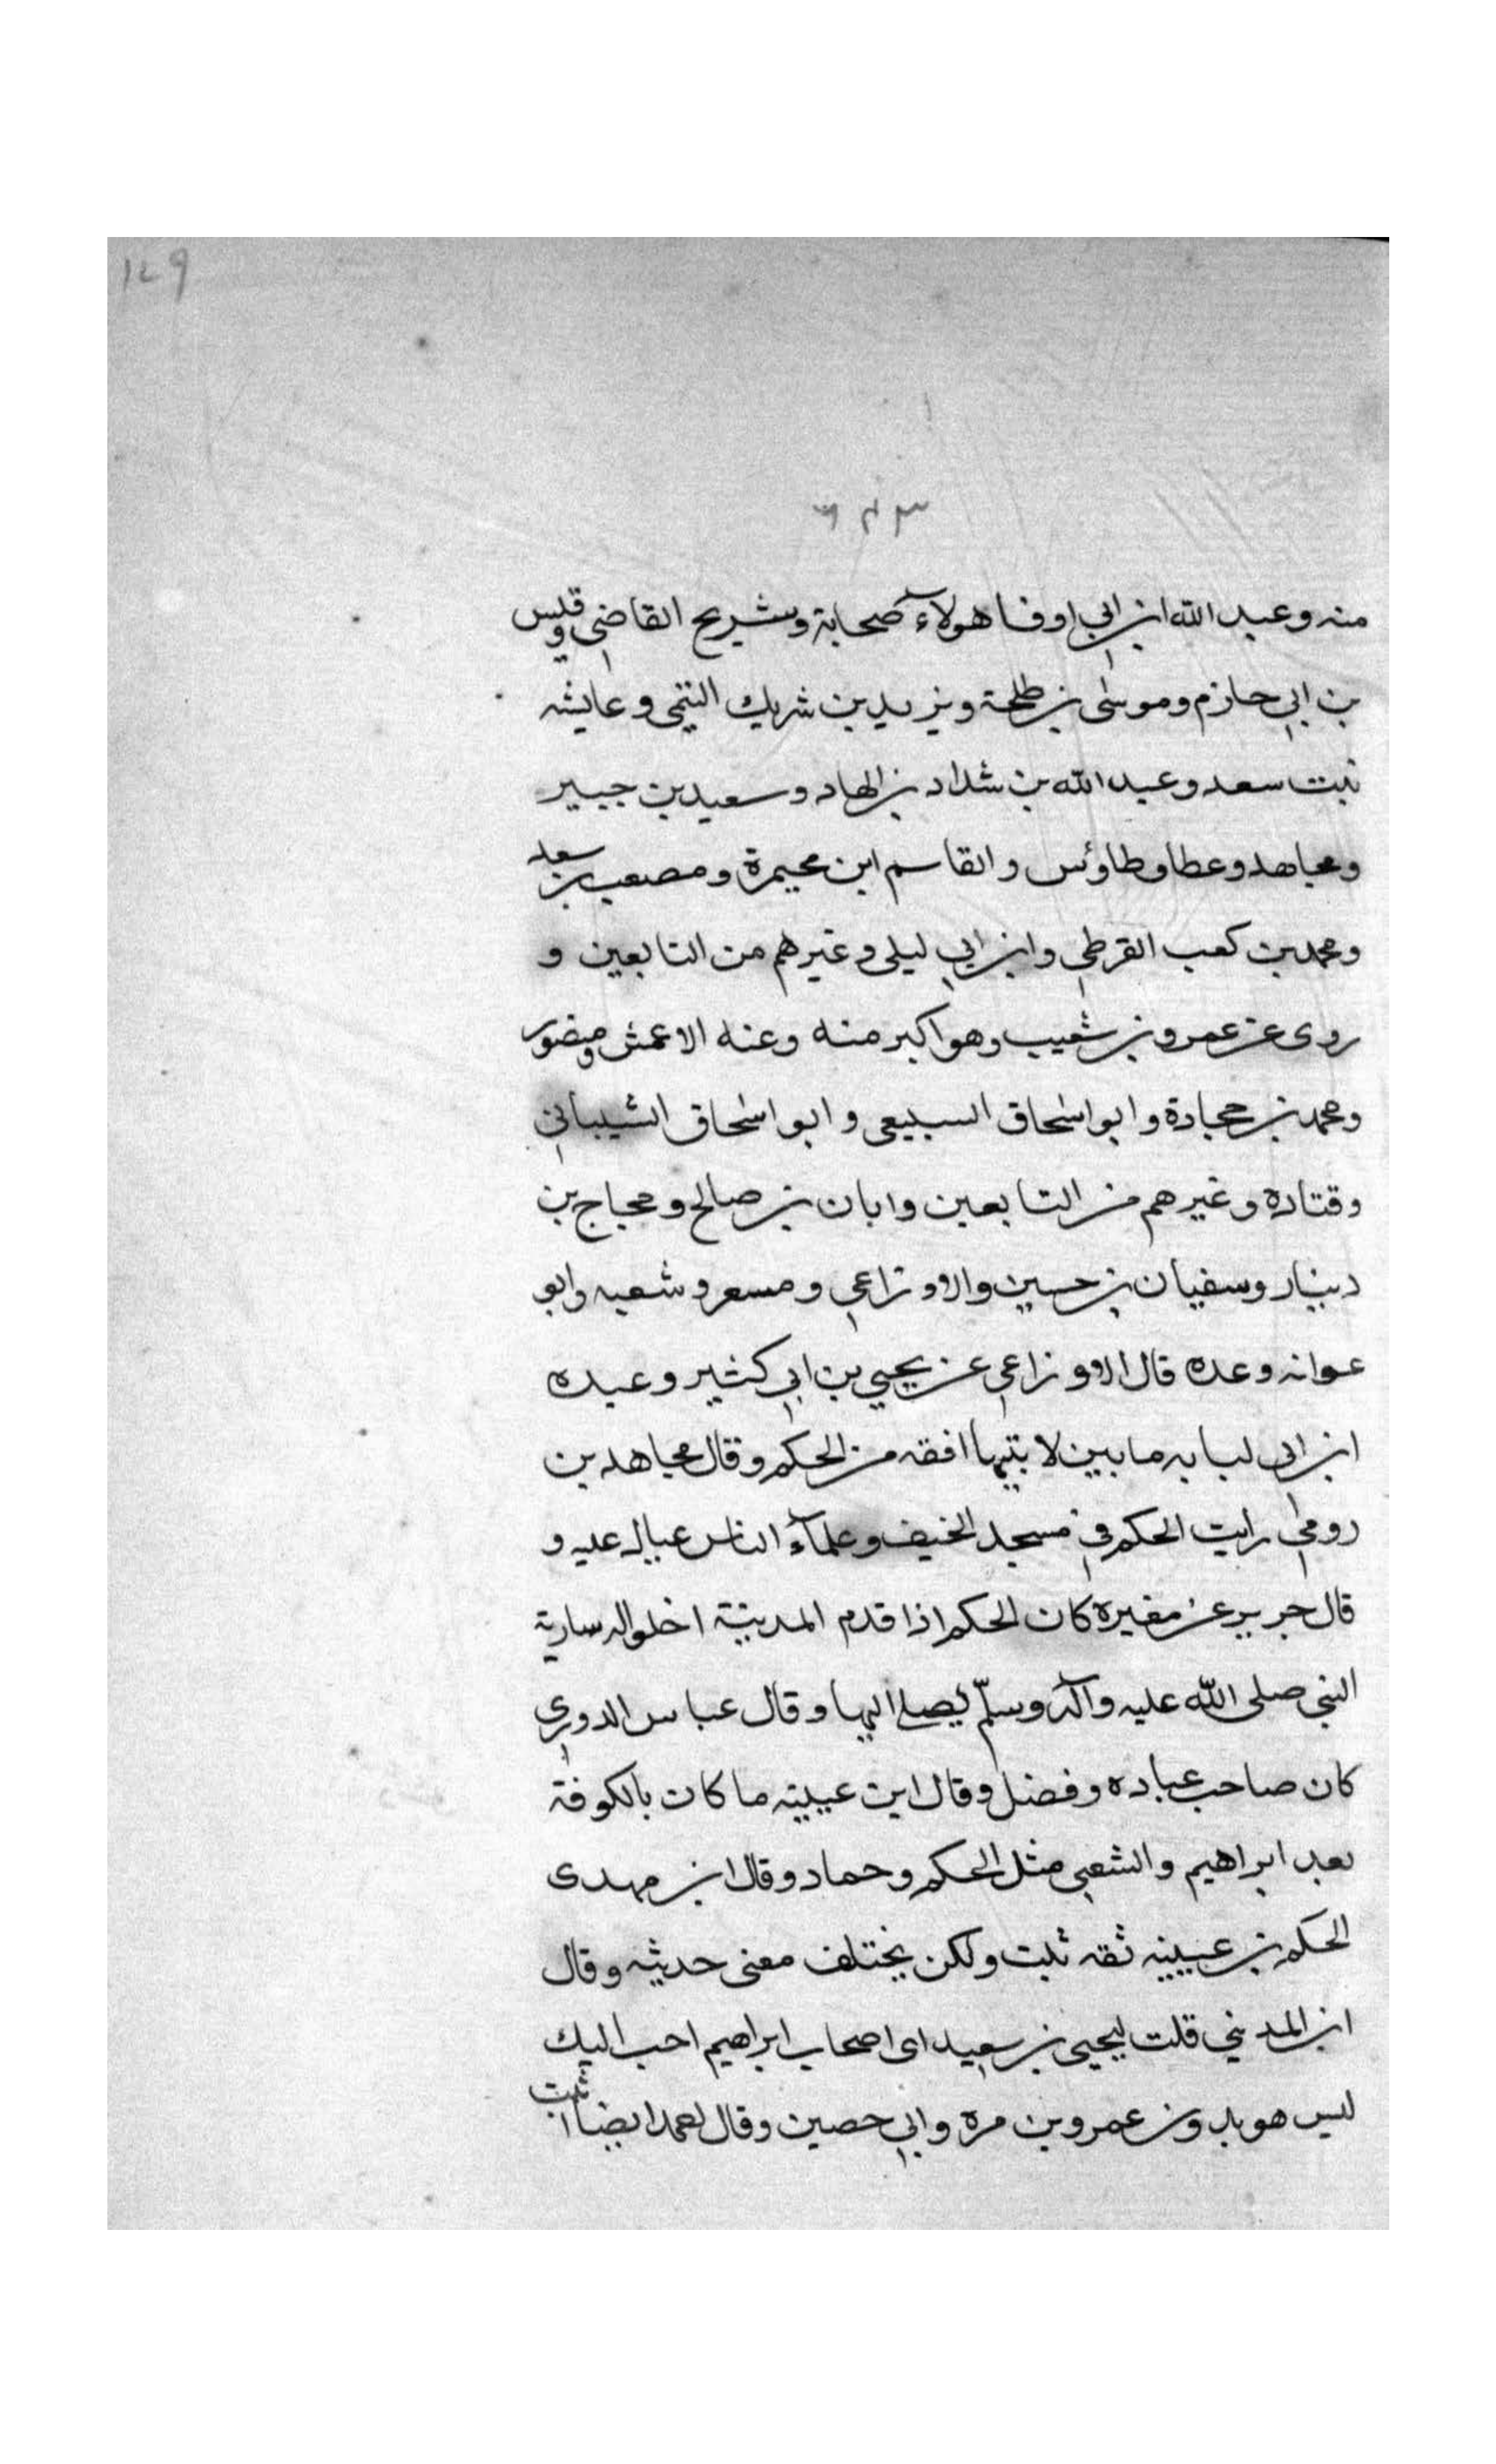 129
منه وعبد الله ابن ابي اوفا هولاء صحابة وشريح القاضي وقيس
بن ابي حازم وموسى بن طلحة ويزيد بن شريك التيمى وعايشه
بنت سعد وعبد الله بن شداد بن الهاد وسعيد بن جبير
ومجاهد وعطا وطاوئس والقاسم ابن مخيمرة ومصعب بن سعد
ومحمد بن كعب القرظي وابن ابي ليلى وغيرهم من التابعين و
روى عن عمرو بن شعيب وهو اكبر منه وعنه الاعمش ومنصور
ومحمد بن حجادة وابو اسحاق السبيعى وابو اسحاق الشيباني
وقتاده وغيرهم من التابعين وابان بن صالح وحجاج بن
دينار وسفيان بن حسين والاوزاعي ومسعر وشعبه وابو
عوانه وعده قال الاوزاعي عن يحيي بن ابي كثير وعبده
ابن ابى لبابه ما بين لابتيها افقه من الحكم وقال مجاهد بن
رومي رايت الحكم في مسجد الخيف وعلمآء الناس عيال عليه و
قال جرير عن مغيرة كان الحكم اذا قدم المدينة اخلوا له سارية
النبي صلى الله عليه وآله وسلّم يصلي اليها وقال عباس الدوري
كان صاحب عباده وفضل وقال ابن عيينه ما كان بالكوفة
بعد ابراهيم والشعبي مثل الحكم وحماد وقال ابن مهدى
الحكم بن عيينه ثقه ثبت ولكن يختلف معنى حديثه وقال
ابن المديني قلت ليحيى بن سعيد اى اصحاب ابراهيم احب اليك
ليس هو بدون عمرو بن مره وابي حصين وقال احمد ايضا اثبت